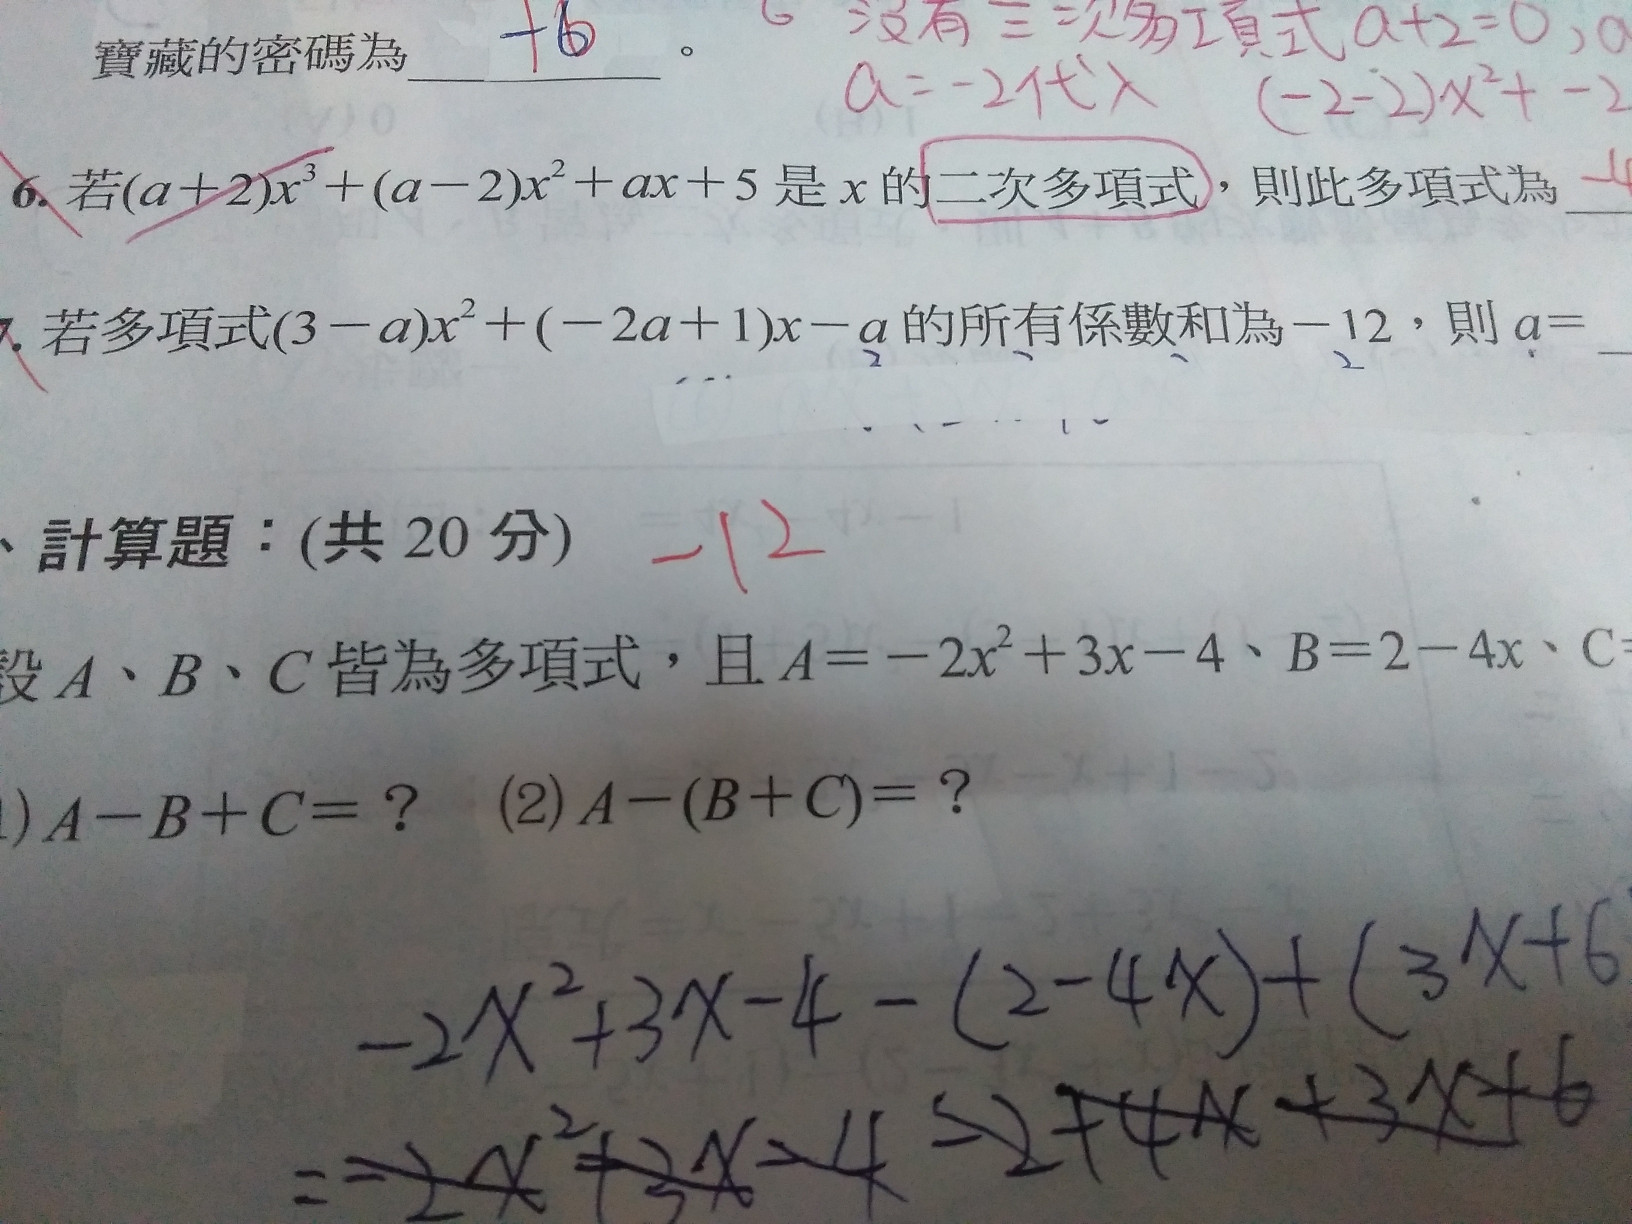 寶藏的密碼為 +6 。
沒有三次多項式 a+2=0，a
a=-2代入 (-2-2)x²+-2
6. 若(a+2)x³+(a-2)x²+ax+5 是 x 的二次多項式，則此多項式為 -4
7. 若多項式(3-a)x²+(-2a+1)x-a 的所有係數和為-12，則 a=
、計算題：(共 20 分) -12
設 A、B、C 皆為多項式，且 A=-2x²+3x-4、B=2-4x、C=
1) A-B+C=？ (2) A-(B+C)=？
-2x²+3x-4-(2-4x)+(3x+6
=-2x²+3x-4-2+4x+3x+6